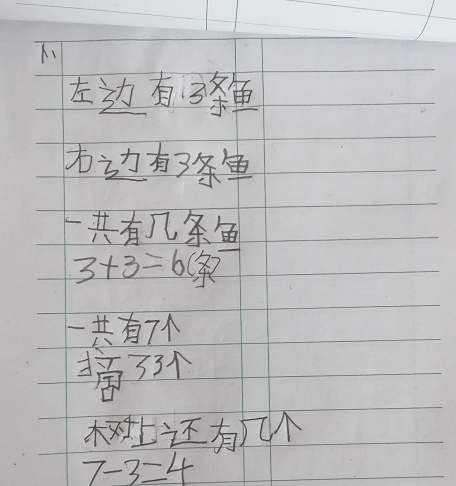 左边有3条鱼
右边有3条鱼
一共有几条鱼
3+3=6(条)
一共有7个
摘了3个
树上还有几个
7-3=4